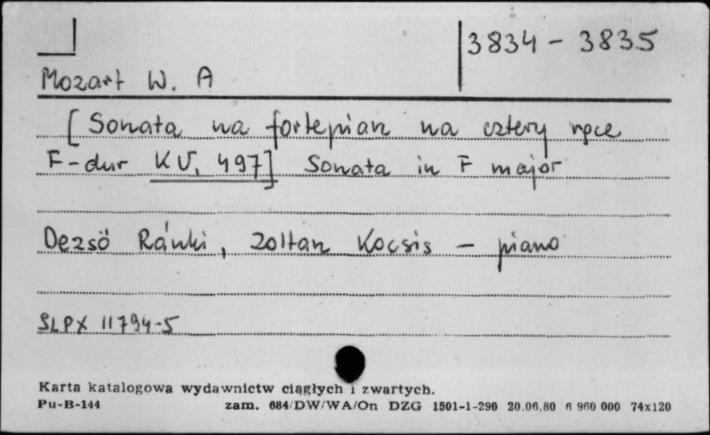 3834 - 3835
Mozart W. A
[ Sonata na fortepian na cztery ręce
F-dur KV. 497] Sonata in F major
Dezsö Ránki, Zoltan Kocsis - piano
SLPX 11794-5
Karta katalogowa wydawnictw ciągłych i zwartych.
Pu-B-144 zam. 684/DW/WA/On DZG 1501-1-290 20.06.80 6 960 000 74x120